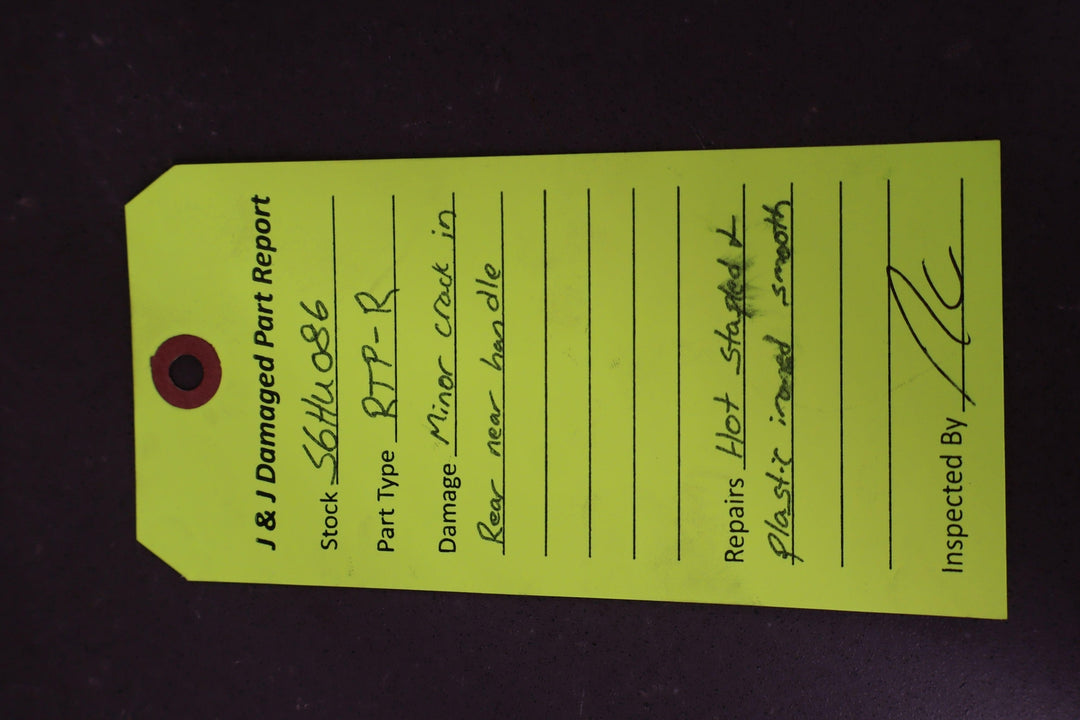 J & J Damaged Part Report
Stock S6HU086
Part Type RTP-R
Damage Minor crack in
Rear near handle
Repairs Hot stapled &
Plastic ironed smooth
Inspected By